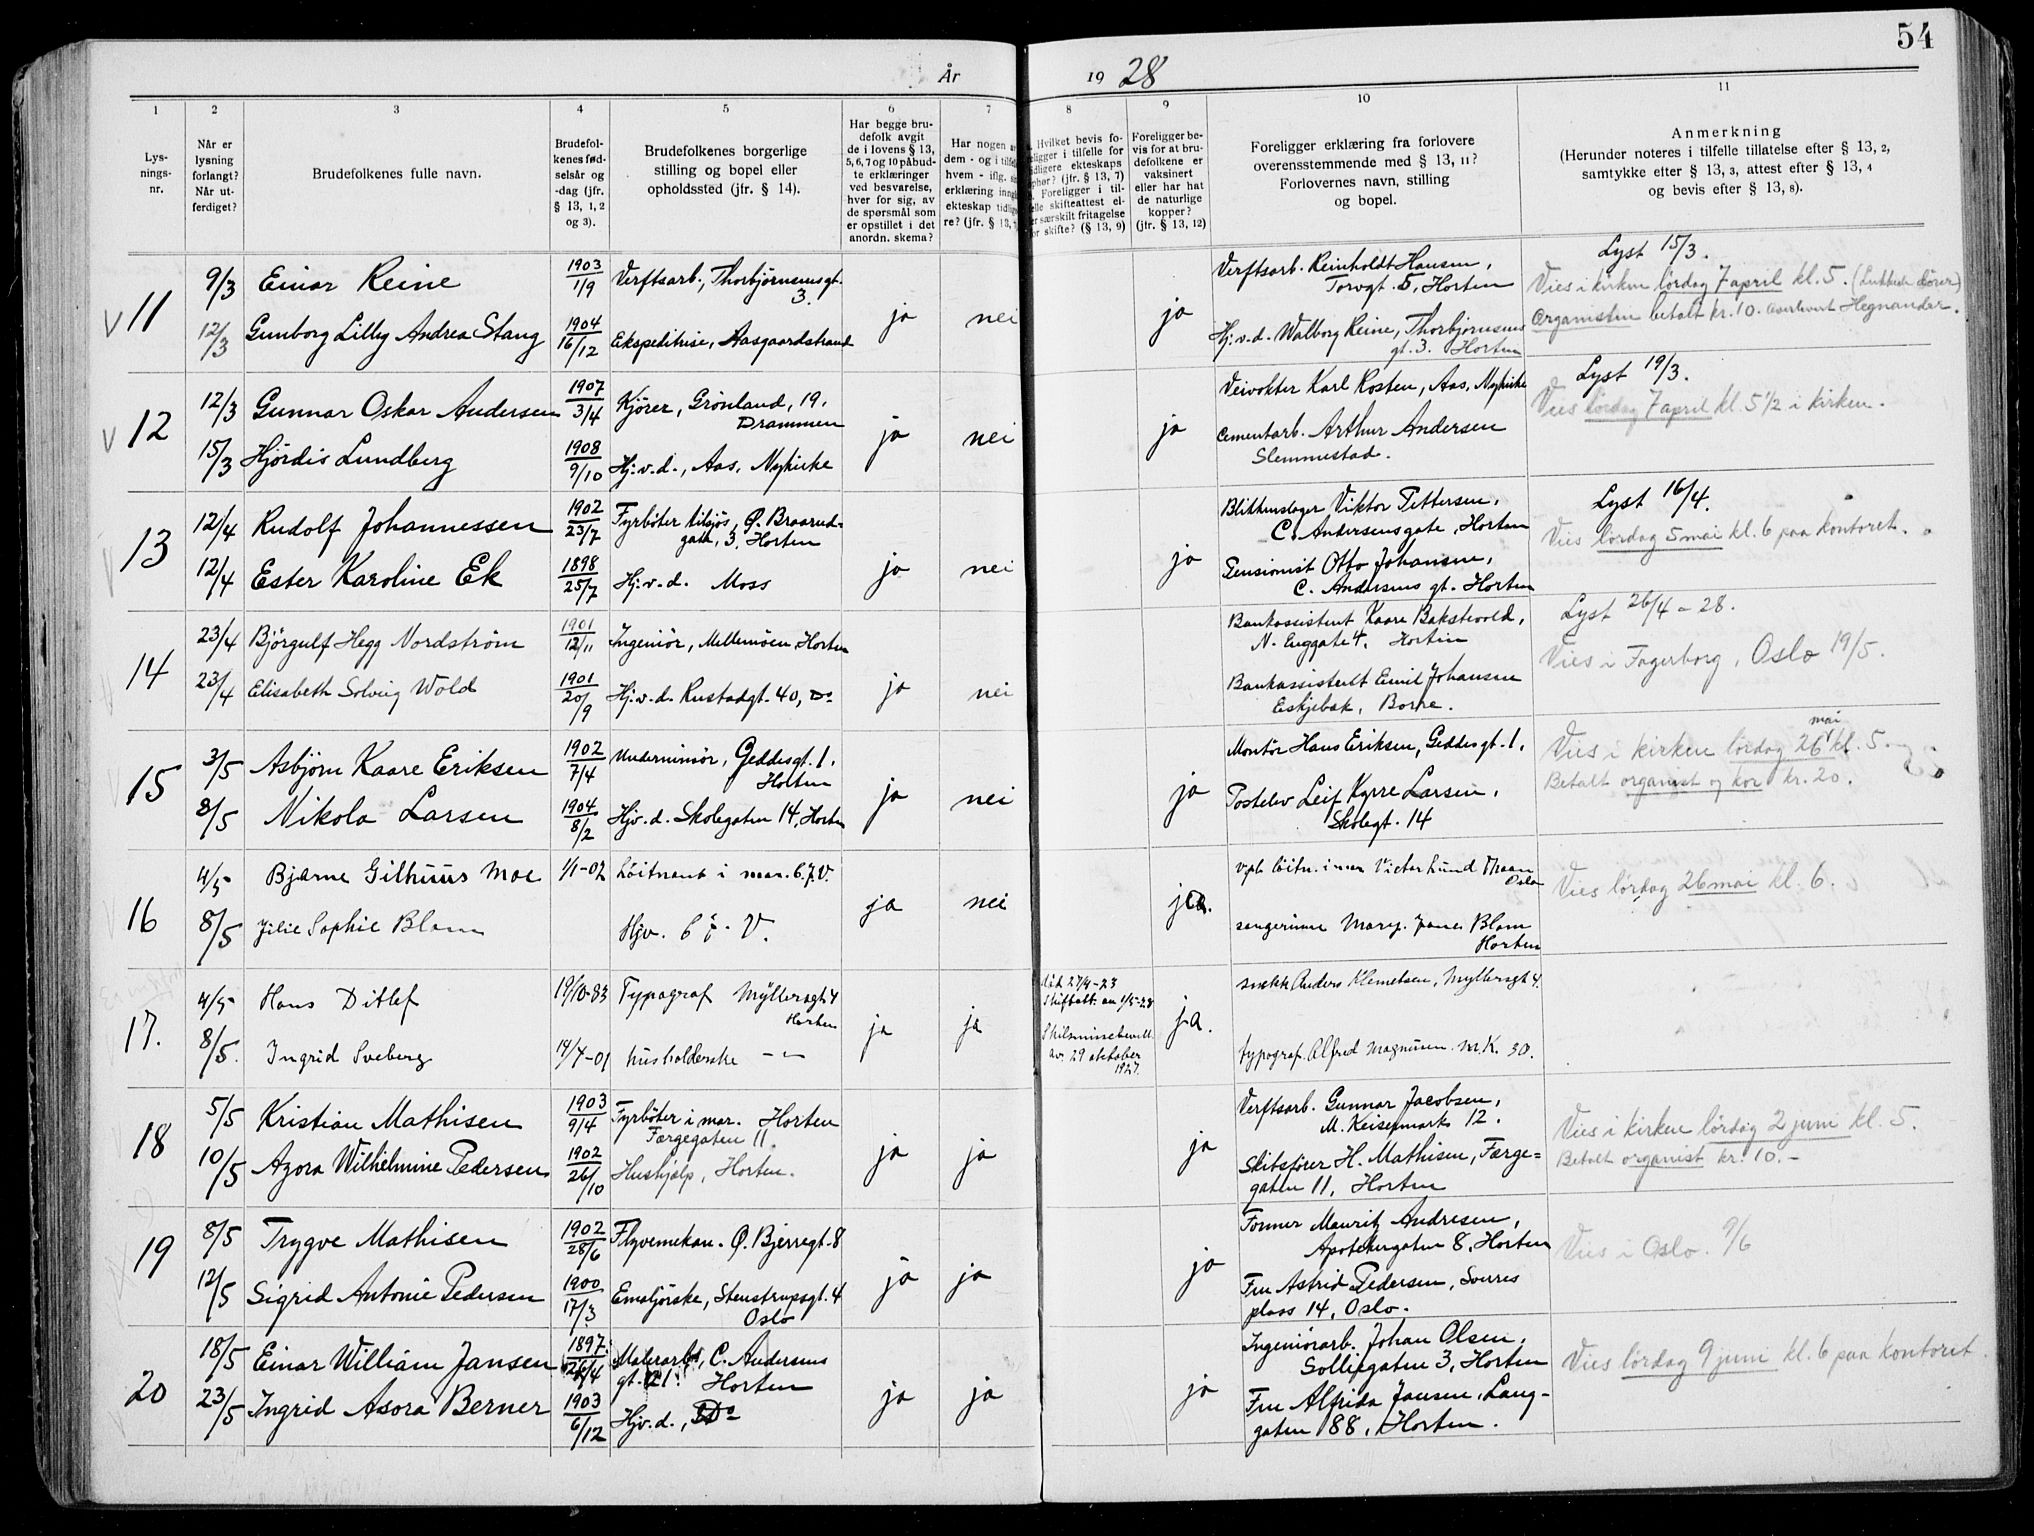 54
År 19 28
1 2 3 4 5 6 7 8 9 10 11
Lys-
nings-
nr.
Når er
lysning
forlangt?
Når ut-
ferdiget?
Brudefolkenes fulle navn.
Brudefol-
kenes fød-
selsår og
-dag (jfr.
§ 13, 1, 2
og 3).
Brudefolkenes borgerlige
stilling og bopel eller
opholdssted (jfr. § 14).
Har begge bru-
defolk avgit
de i lovens § 13,
5, 6, 7 og 10 påbud-
te erklæringer
ved besvarelse,
hver for sig, av
de spørsmål som
er opstillet i det
anordn. skema?
Har nogen
dem - og i
hvem - iflg.
erklæring
ekteskap
re? (jfr. § 13,
Hvilket bevis fo-
religger i tilfelle for
ekteskaps
ophør? (jfr. § 13, 7)
Foreligger i til-
skifteattest el-
særskilt fritagelse
skifte? (§ 13, 9)
Foreligger be-
vis for at bru-
defolkene er
vaksinert
eller har hat
de naturlige
kopper?
(jfr. § 13, 12)
Foreligger erklæring fra forlovere
overensstemmende med § 13, 11?
Forlovernes navn, stilling
og bopel.
Anmerkning
(Herunder noteres i tilfelle tillatelse efter § 13, 2,
samtykke efter § 13, 3, attest efter § 13, 4
og bevis efter § 13, 8).
V 11
9/3 Einar Reine 1903 1/9 Verftsarb., Thorbjørnsensgt.
3.
12/3 Gunborg Lilly Andrea Stang 1904 16/12 Ekspeditrise, Aasgaardstrand
ja nei ja
Verftsarb. Reinholdt Hansen,
Torvgt. 5, Horten
Hj.v.d. Walborg Reine, Thorbjørnsens
gt. 3. Horten
Lyst 15/3.
Vies i kirken lørdag 7 april kl. 5. (Lukkede dører)
Organisten betalt kr. 10. overlevert Hegnander.
V 12
12/3 Gunnar Oskar Andersen 1907 3/4 Kjører, Grønland, 19,
Drammen
15/3 Hjørdis Lundberg 1908 9/10 Hj.v.d., Aas, Nykirke
ja nei ja
Veivokter Karl Rosten, Aas, Nykirke
Cementarb. Arthur Andersen
Slemmestad.
Lyst 19/3.
Vies lørdag 7 april kl. 5 1/2 i kirken.
V 13
12/4 Rudolf Johannessen 1902 23/7 Fyrbøter tilsjøs, Q. Braarud-
gate, 3, Horten
12/4 Ester Karoline Ek 1898 25/7 Hj.v.d. Moss
ja nei ja
Blikkenslager Viktor Pettersen,
C. Andersensgate, Horten
Pensionist Otto Johansen,
C. Andersens gt. Horten
Lyst 16/4.
Vies lørdag 5 mai kl. 6 paa kontoret.
14
23/4 Bjørgulf Hegg Nordstrøm 1901 12/11 Ingeniør, Mellemøen, Horten
23/4 Elisabeth Solveig Wold 1901 20/9 Hj.v.d. Rustadgt. 40, Do
ja nei
Bankassistent Kaare Bakstevold,
N. Enggate 4, Horten
Bankassistent Emil Johansen
Eskjebæk, Borre.
Lyst 26/4 - 28.
Vies i Fagerborg, Oslo 19/5.
15
3/5 Asbjørn Kaare Eriksen 1902 7/4 Underminør, Geddesgt. 1,
Horten
8/5 Nikola Larsen 1904 8/2 Hjv.d. Skolegaten 14, Horten
ja nei ja
Montør Hans Eriksen, Geddesgt. 1,
Postelev Leif Kyrre Larsen,
Skolegt. 14
Vies i kirken lørdag 26 mai kl. 5
Betalt organist og kor kr. 20.
16
4/5 Bjarne Gilhuus Moe 1/1-02 Løitnant i mar. 6.7.V.
8/5 Jilie Sophie Blom Hjv. 6 7. V.
ja nei ja.
vpl. løitn. i mar Victor Lund Thaan
Oslo
sangerinne Mary. Jane Blom
Horten
Vies lørdag 26 mai kl. 6.
17.
4/5 Hans Ditlef 19/10-83 Typograf Myllersgt 4
Horten
8/5. Ingrid Sveberg 14/4-01 husholderske - " -
ja ja
Skifteatt. av 1/5-28
Skilsmissebevill.
av 29 oktober
1927.
ja.
snekk Anders Klemetsen, Myllersgt 4.
typograf Alfred Magnusen. m.K. 30.
18
5/5 Kristian Mathisen 1903 9/4 Fyrbøter i mar. Horten
Færgegaten 11.
10/5 Agora Wilhelmine Pedersen 1902 26/10 Hushjelp, Horten.
ja ja ja
Verftsarb. Gunnar Jacobsen,
M. Keisemark 12.
Skibsfører H. Mathisen, Færge-
gaten 11, Horten
Vies i kirken lørdag 2 juni kl. 5.
Betalt organist kr. 10.-
19
8/5 Trygve Mathisen 1902 28/6 Flyvemekan. Q. Bjerregt. 8
12/5 Sigrid Antonie Pedersen 1900 17/3 Emaljørske, Stenstrupsgt. 4
Oslo
ja ja ja
Former Mauritz Andresen,
Apotekergaten 8, Horten
Fru Astrid Pedersen, Sverres
plass 14, Oslo.
Vies i Oslo. 9/6
20
18/5 Einar William Jansen 1897. 26/4 Malerarb., C. Andersens
gt. 21. Horten
23/5 Ingrid Asora Berner 1903 6/12 Hjv.d., Do
ja ja ja
Ingeniørarb. Johan Olsen,
Solliegaten 3, Horten
Fru Alfrida Jansen, Lang-
gaten 88, Horten.
Vies lørdag 9 juni kl. 6 paa kontoret.